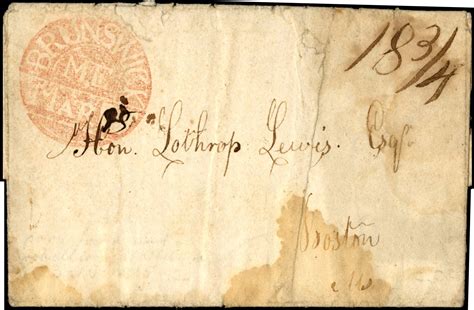 BRUNSWICK
ME
MAR
18 3/4
Hon. Lothrop Lewis. Esqr
Boston
Ms